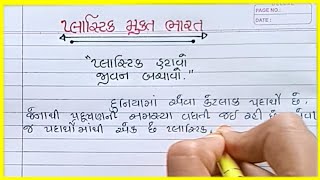 PAGE NO.:
DATE:
પ્લાસ્ટિક મુક્ત ભારત
"પ્લાસ્ટિક હટાવો
જીવન બચાવો."
દુનિયામાં એવા કેટલાક પદાર્થો છે.
જેનાથી પ્રદૂષણની સમસ્યા વધતી જઈ રહી છે. એવા
જ પદાર્થોમાંથી એક છે પ્લાસ્ટિક.